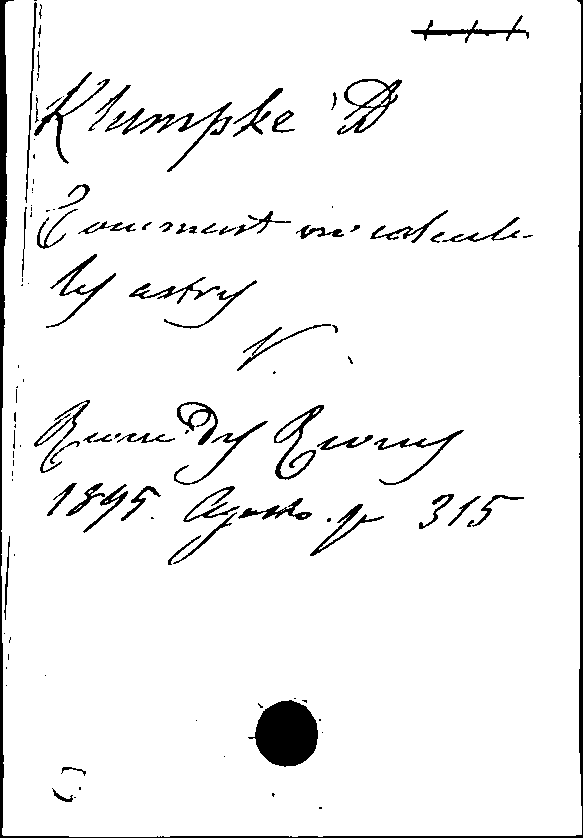 Klumpke D
Comment on calcule
les astres
V.
Revue Des Revues
1895. Agosto. p 315